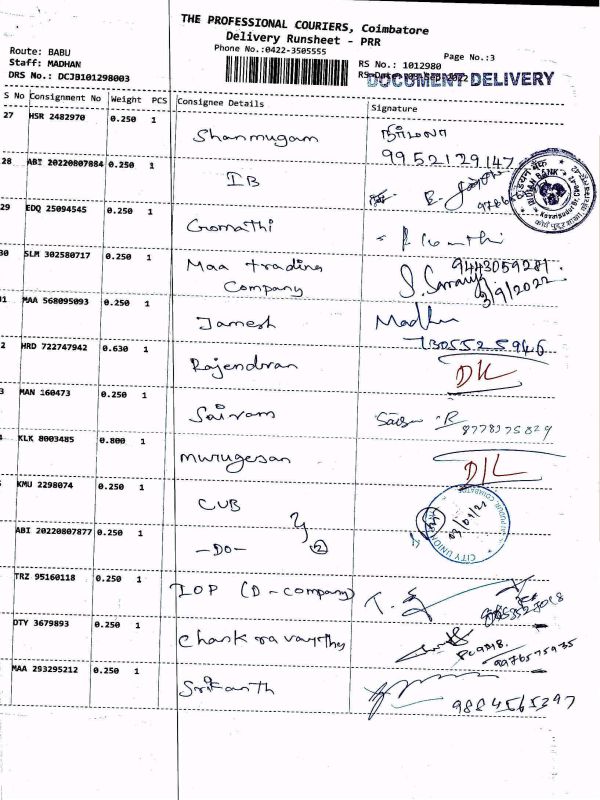 THE PROFESSIONAL COURIERS, Coimbatore
Delivery Runsheet - PRR
Phone No.:0422-3505555
Route: BABU
Staff: MADHAN
DRS No.: DCJB101298003
Page No.:3
RS No.: 1012980
DOCUMENT DELIVERY
S No Consignment No Weight PCS Consignee Details Signature
27 HSR 2482970 0.250 1 Shanmugam நிர்மலா
9952129147
28 ABI 20220807884 0.250 1 IB
INDIAN BANK
29 EDQ 25094545 0.250 1 Gomathi
30 SLM 302580717 0.250 1 Maa trading 9443059281
Company 3/9/2022
1 MAA 568095093 0.250 1 Jamesh Madhu
7305525946
2 HRD 722747942 0.630 1 Rajendran D/L
3 MAN 160473 0.250 1 Sairam
8778375829
KLK 8003485 0.800 1 Murugesan D/L
KMU 2298074 0.250 1 CUB
CITY UNION
ABI 20220807877 0.250 1 -DO- 2
TRZ 95160118 0.250 1 IOP (D-company)
DTY 3679893 0.250 1 Chankravarthy
9976575935
MAA 293295212 0.250 1 Srikanth
9884565397